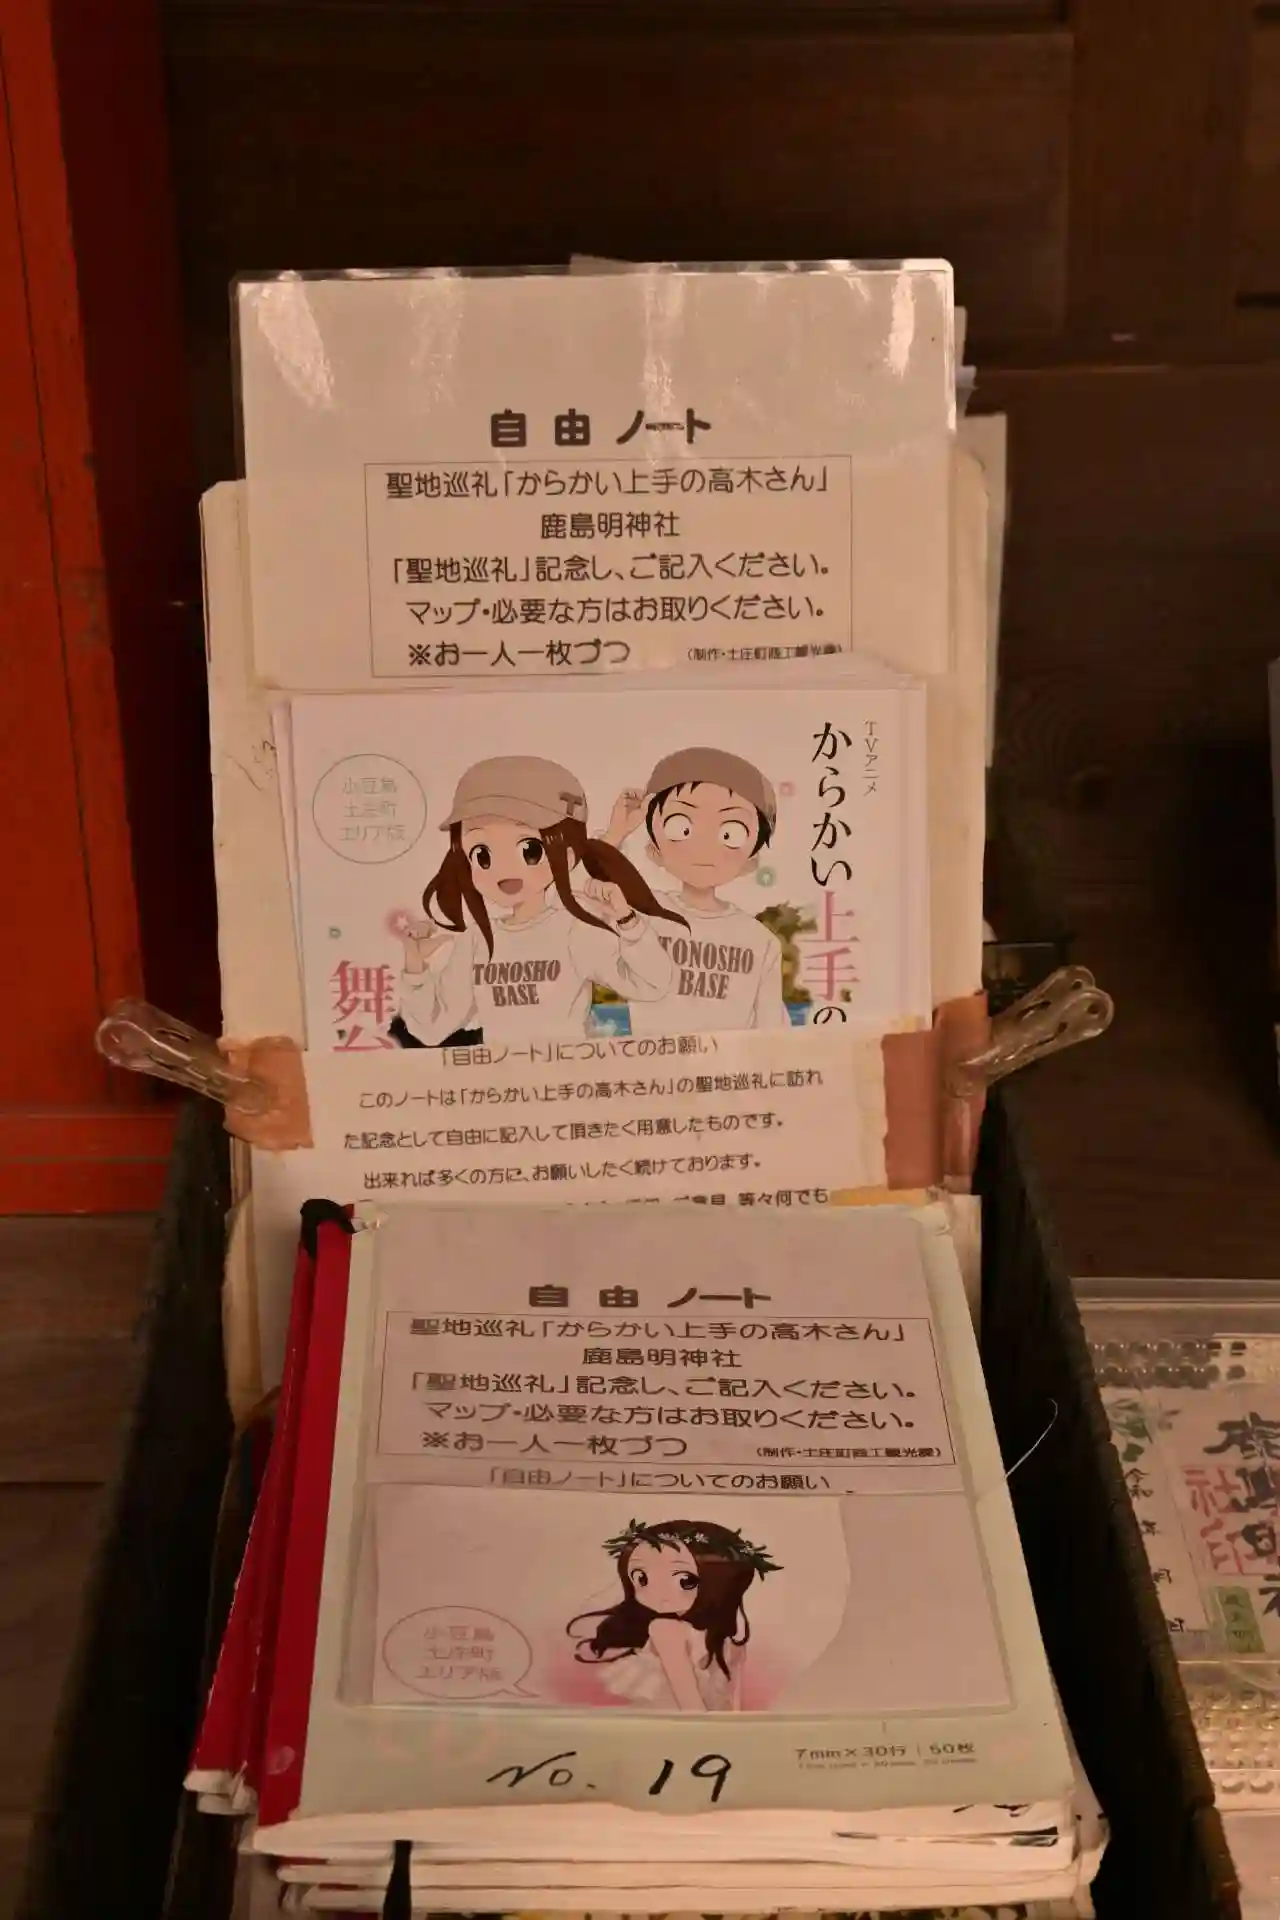 自由ノート
聖地巡礼「からかい上手の高木さん」
鹿島明神社
「聖地巡礼」記念し、ご記入ください。
マップ・必要な方はお取りください。
※お一人一枚づつ
(制作・土庄町商工観光課)
TVアニメ
からかい上手の
小豆島
土庄町
エリア版
TONOSHO
BASE
TONOSHO
BASE
舞台
「自由ノート」についてのお願い
このノートは「からかい上手の高木さん」の聖地巡礼に訪れ
た記念として自由に記入して頂きたく用意したものです。
出来れば多くの方に、お願いしたく続けております。
ご意見、等々何でも
自由ノート
聖地巡礼「からかい上手の高木さん」
鹿島明神社
「聖地巡礼」記念し、ご記入ください。
マップ・必要な方はお取りください。
※お一人一枚づつ
(制作・土庄町商工観光課)
「自由ノート」についてのお願い
小豆島
土庄町
エリア版
7mm×30行 | 50枚
No. 19
令和